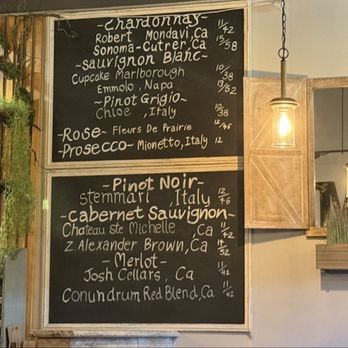 -Chardonnay- 11/42
Robert Mondavi, Ca
Sonoma-Cutrer, Ca 15/58
-Sauvignon Blanc-
Cupcake Marlborough 10/38
Emmolo, Napa
-Pinot Grigio-
Chloe , Italy 10/38
-Rose- Fleurs De Prairie 12/46
-Prosecco- Mionetto, Italy 12
-Pinot Noir-
Stemmari , Italy 12/46
-Cabernet Sauvignon-
Chateau Ste Michelle , Ca 11/42
Z. Alexander Brown, Ca 14/52
-Merlot-
Josh Cellars, Ca 11/42
Conundrum Red Blend, Ca 11/42